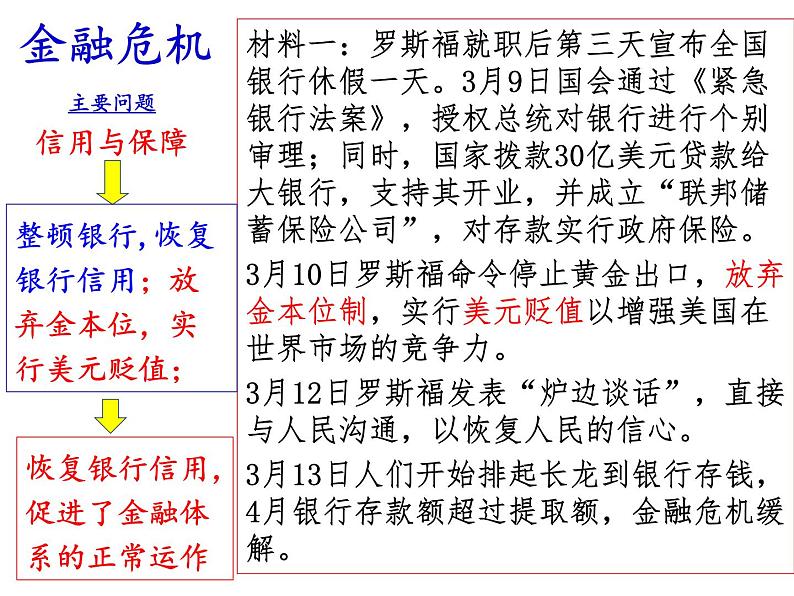 金融危机
主要问题
信用与保障
整顿银行,恢复
银行信用；放
弃金本位，实
行美元贬值；
恢复银行信用，
促进了金融体
系的正常运作
材料一：罗斯福就职后第三天宣布全国
银行休假一天。3月9日国会通过《紧急
银行法案》，授权总统对银行进行个别
审理；同时，国家拨款30亿美元贷款给
大银行，支持其开业，并成立“联邦储
蓄保险公司”，对存款实行政府保险。
3月10日罗斯福命令停止黄金出口，放弃
金本位制，实行美元贬值以增强美国在
世界市场的竞争力。
3月12日罗斯福发表“炉边谈话”，直接
与人民沟通，以恢复人民的信心。
3月13日人们开始排起长龙到银行存钱，
4月银行存款额超过提取额，金融危机缓
解。